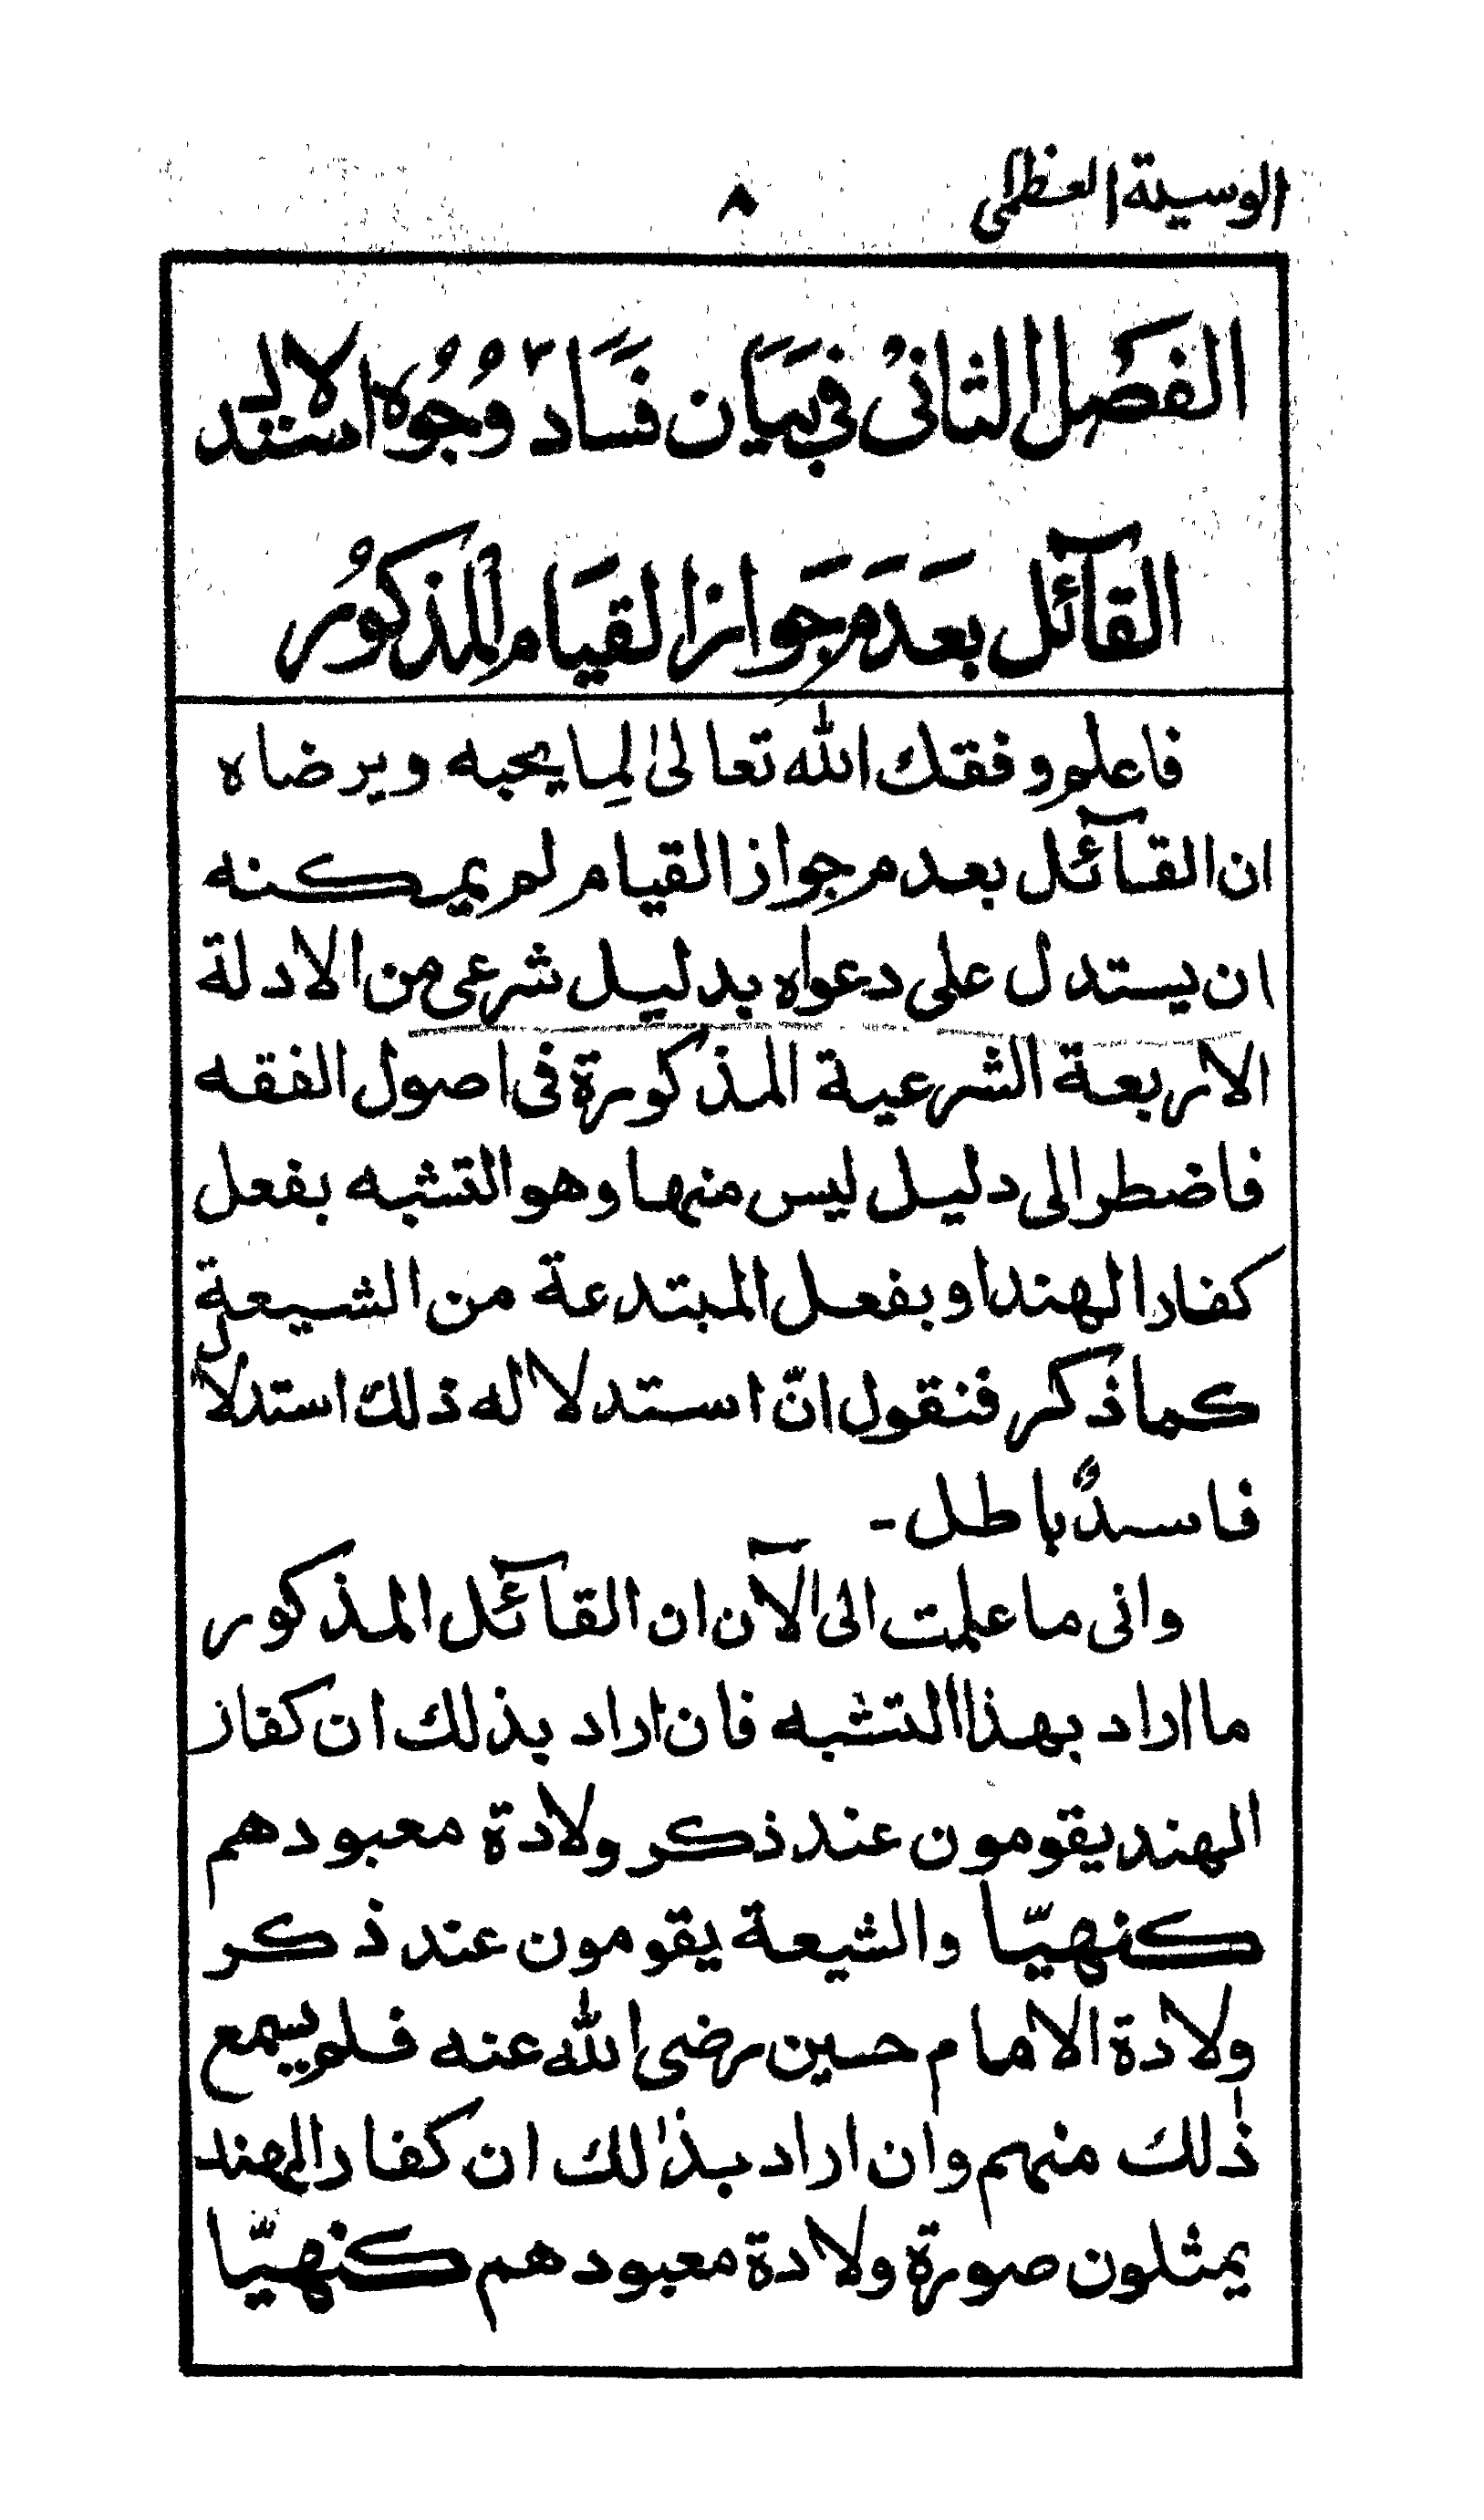 الوسيلة العظمى ٨
الفَصُل الثانیُ فی بَیَان فَسَاد وُجُوْه استدلال
القآئل بعَدَم جَواز القیَام المذکوُر
فاعلم وفقك الله تعالىٰ لِما يحبه ويرضاه
ان القآئل بعدم جواز القيام لم يمكنه
ان يستدل على دعواه بدليل شرعى من الادلة
الاربعة الشرعية المذكورة فى اصول الفقه
فاضطر الى دليل ليس منها وهو التشبه بفعل
كفار الهند او بفعل المبتدعة من الشيعة
كما ذكر فنقول انّ استدلاله ذلك استدلال
فاسدٌ باطل۔
وانى ما علمت الى الآن ان القآئل المذكور
ما اراد بهذا التشبه فان اراد بذلك ان كفار
الهند يقومون عند ذكر ولادة معبودهم
كنهيّا والشيعة يقومون عند ذكر
ولادة الامام حسين رضى الله عنه فلم يسمع
ذٰلك منهم وان اراد بذٰلك ان كفار الهند
يمثلون صورة ولادة معبودهم كنهيّا